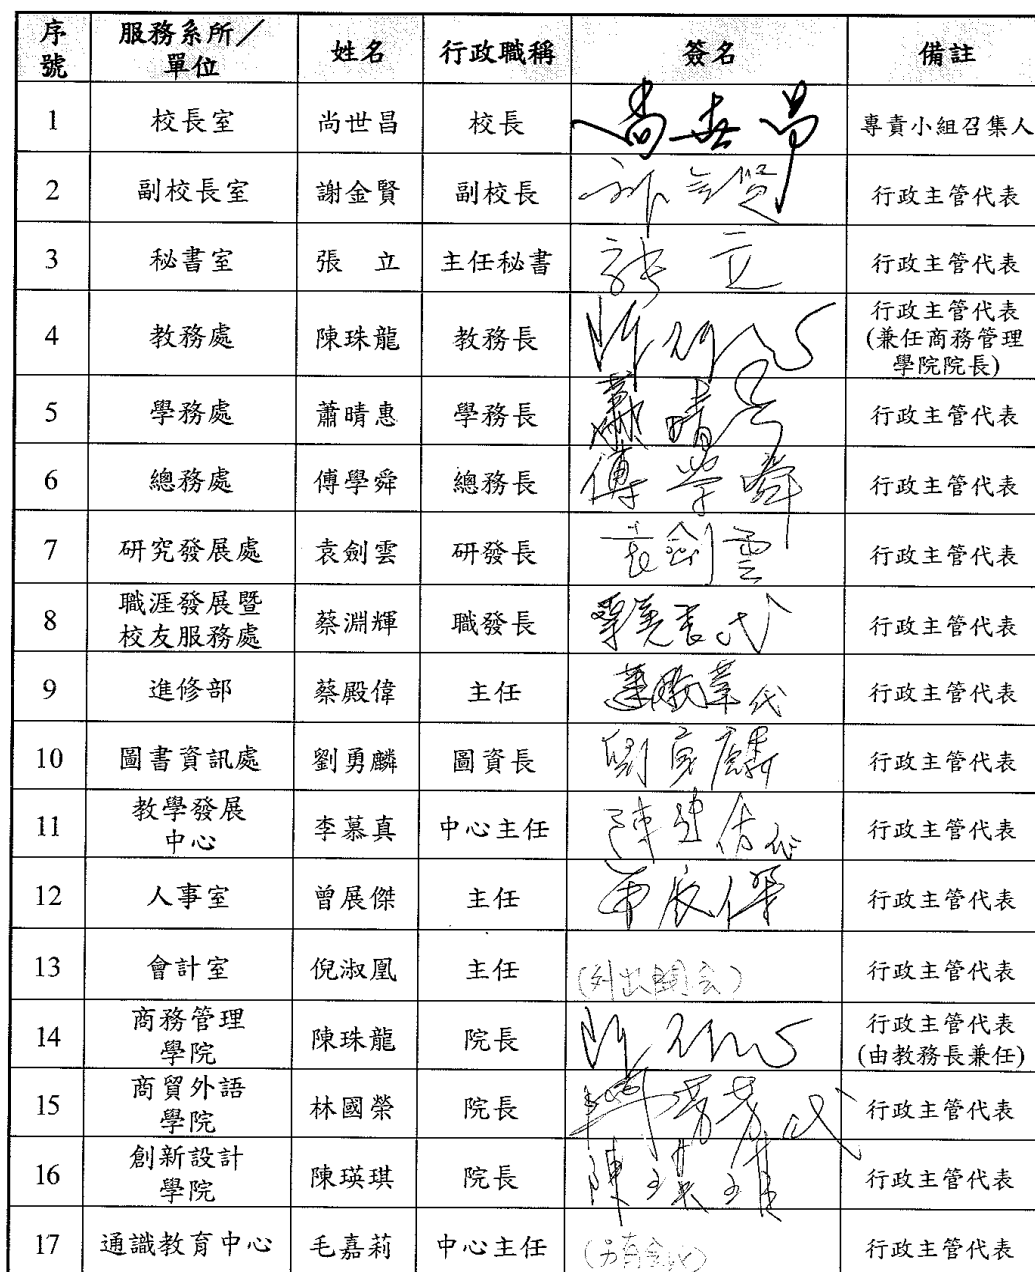 序號 服務系所／單位 姓名 行政職稱 簽名 備註
1 校長室 尚世昌 校長 尚世昌 專責小組召集人
2 副校長室 謝金賢 副校長 行政主管代表
3 秘書室 張 立 主任秘書 張 立 行政主管代表
4 教務處 陳珠龍 教務長 行政主管代表
(兼任商務管理
學院院長)
5 學務處 蕭晴惠 學務長 蕭晴惠 行政主管代表
6 總務處 傅學舜 總務長 傅学舜 行政主管代表
7 研究發展處 袁劍雲 研發長 袁劍雲 行政主管代表
8 職涯發展暨
校友服務處 蔡淵輝 職發長 代 行政主管代表
9 進修部 蔡殿偉 主任 代 行政主管代表
10 圖書資訊處 劉勇麟 圖資長 劉勇麟 行政主管代表
11 教學發展
中心 李慕真 中心主任 代 行政主管代表
12 人事室 曾展傑 主任 行政主管代表
13 會計室 倪淑凰 主任 (外出開会) 行政主管代表
14 商務管理
學院 陳珠龍 院長 行政主管代表
(由教務長兼任)
15 商貿外語
學院 林國榮 院長 代 行政主管代表
16 創新設計
學院 陳瑛琪 院長 行政主管代表
17 通識教育中心 毛嘉莉 中心主任 (另有會議) 行政主管代表